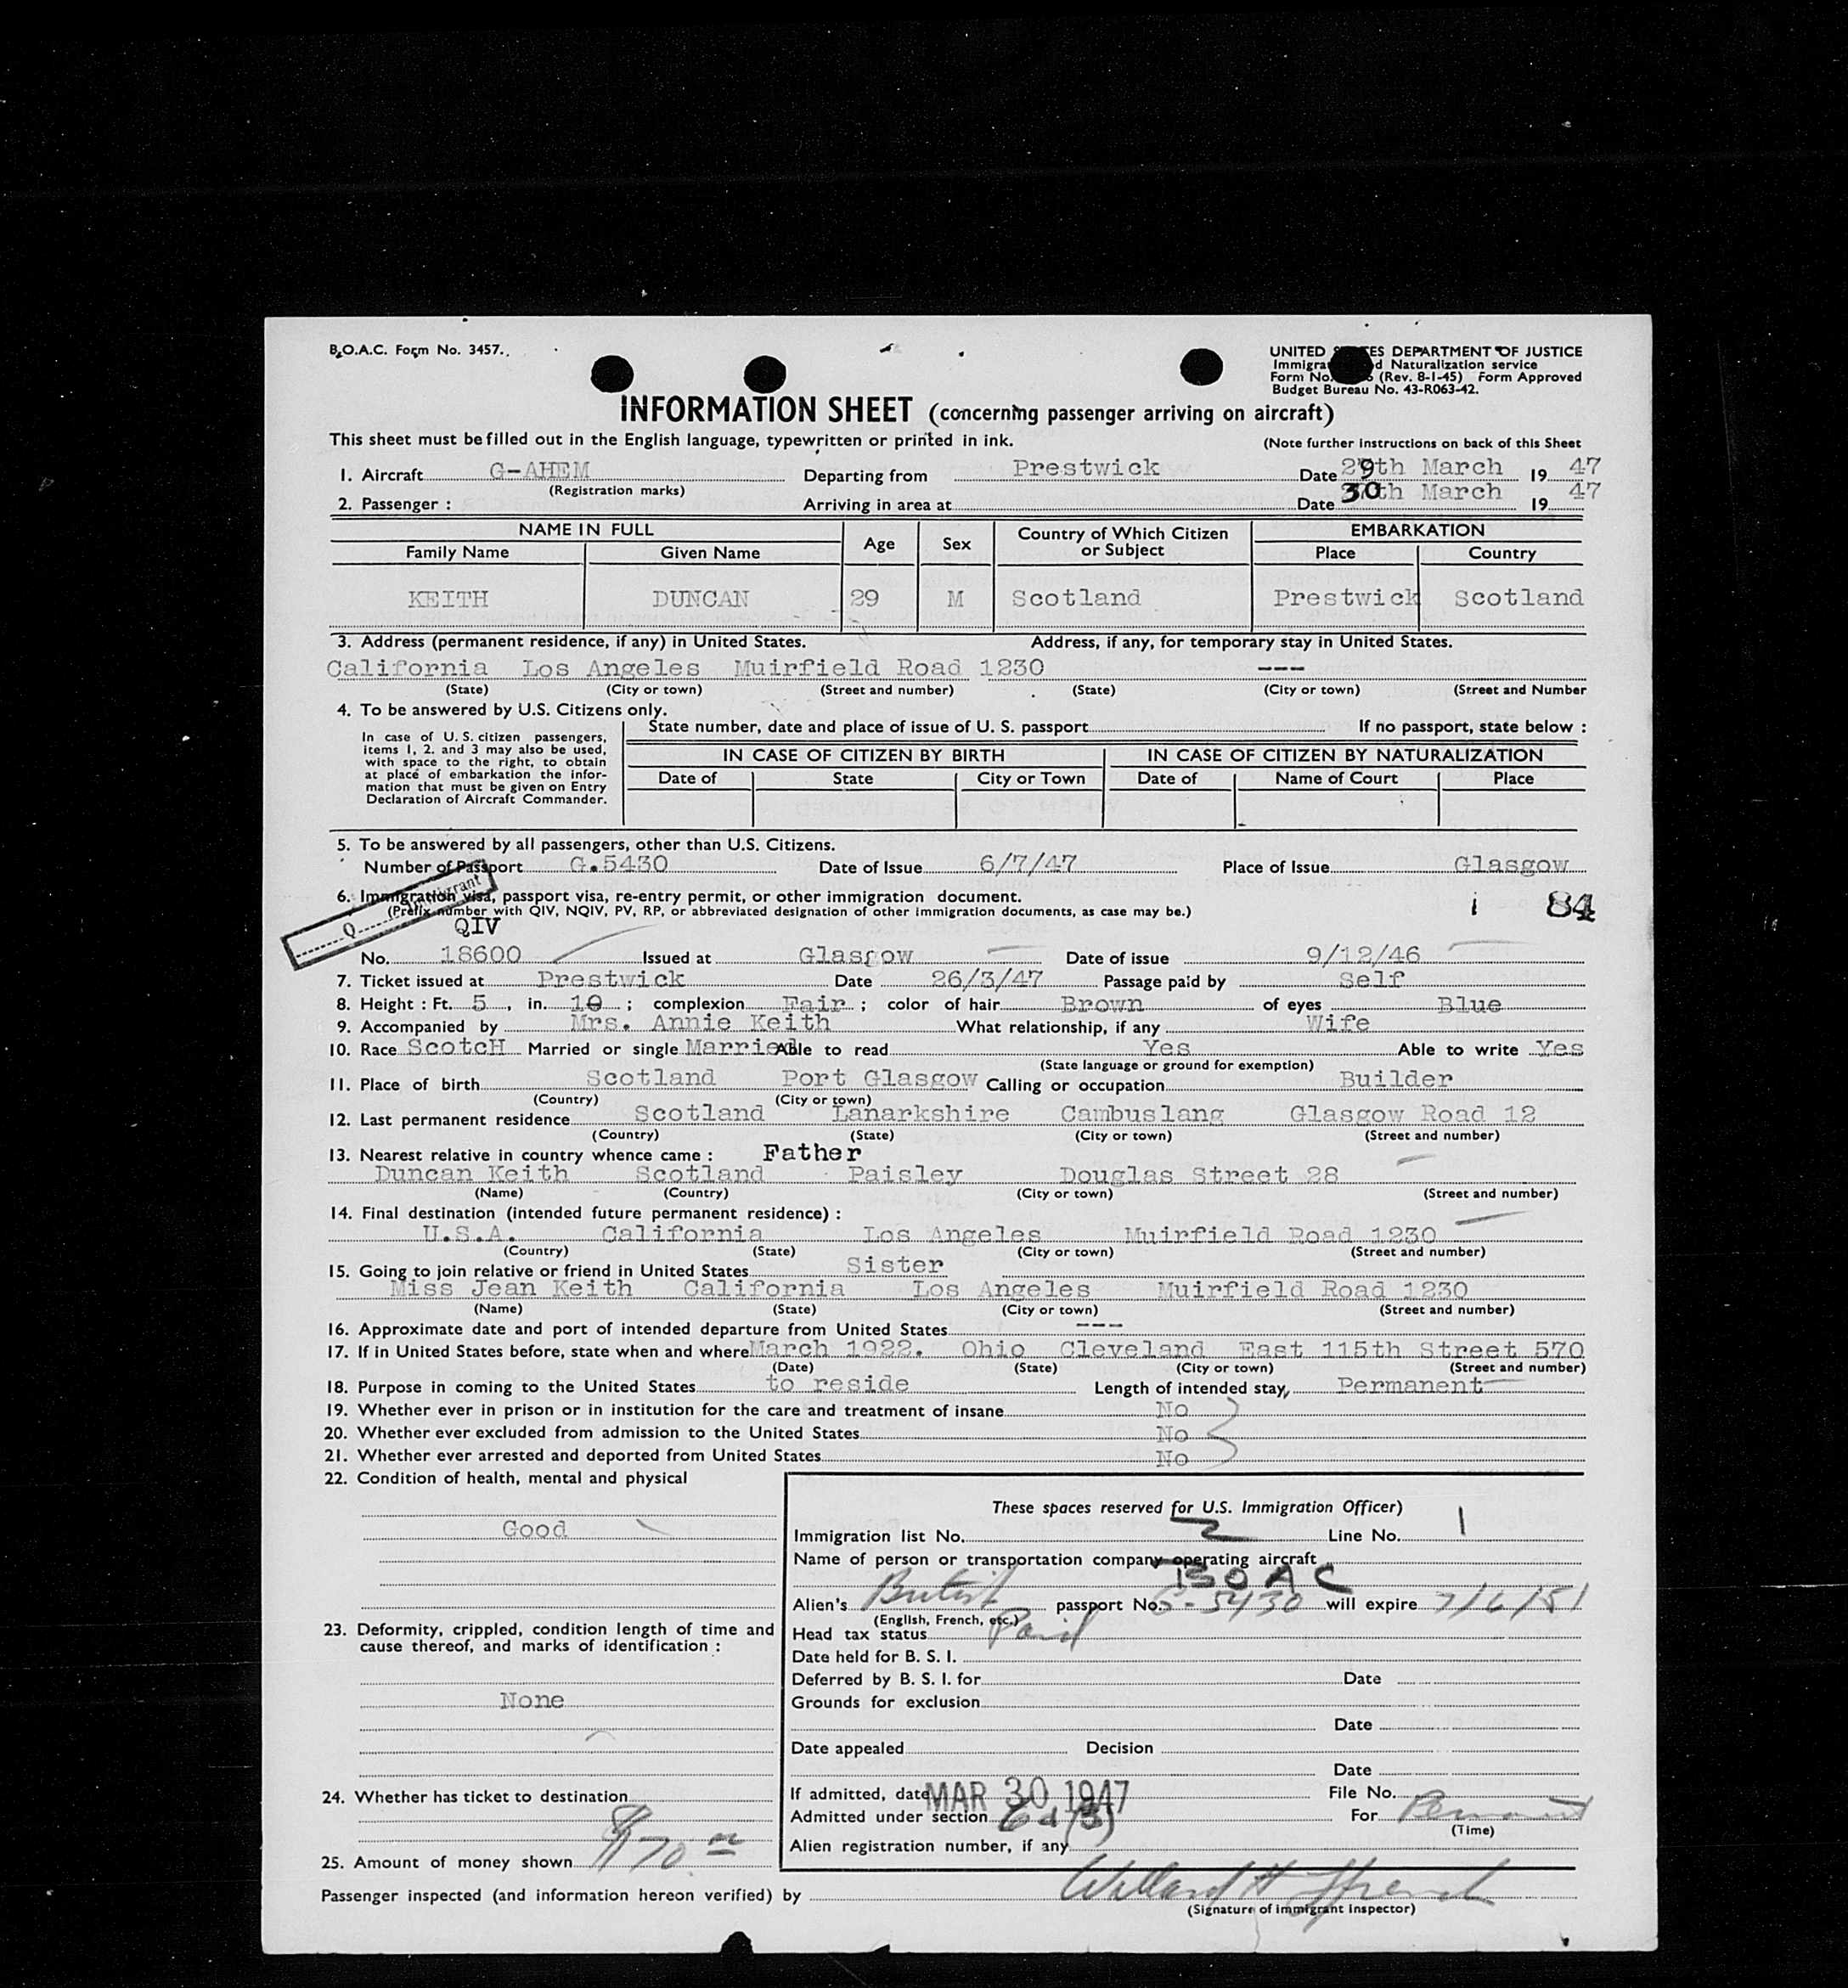 B.O.A.C. Form No. 3457.
UNITED ES DEPARTMENT OF JUSTICE
Immigra d Naturalization service
Form No. (Rev. 8-1-45) Form Approved
Budget Bureau No. 43-R063-42.
INFORMATION SHEET (concerning passenger arriving on aircraft)
This sheet must be filled out in the English language, typewritten or printed in ink. (Note further instructions on back of this Sheet
1. Aircraft G-AHEM Departing from Prestwick Date 29th March 19 47
(Registration marks)
2. Passenger : Arriving in area at Date 30th March 19 47
NAME IN FULL Age Sex Country of Which Citizen or Subject EMBARKATION
Family Name Given Name Place Country
KEITH DUNCAN 29 M Scotland Prestwick Scotland
3. Address (permanent residence, if any) in United States. Address, if any, for temporary stay in United States.
California Los Angeles Muirfield Road 1230 ---
(State) (City or town) (Street and number) (State) (City or town) (Street and Number
4. To be answered by U.S. Citizens only.
In case of U.S. citizen passengers, items 1, 2, and 3 may also be used, with space to the right, to obtain at place of embarkation the information that must be given on Entry Declaration of Aircraft Commander.
State number, date and place of issue of U. S. passport If no passport, state below :
IN CASE OF CITIZEN BY BIRTH IN CASE OF CITIZEN BY NATURALIZATION
Date of State City or Town Date of Name of Court Place
5. To be answered by all passengers, other than U.S. Citizens.
Number of Passport G.5430 Date of Issue 6/7/47 Place of Issue Glasgow
6. Immigration visa, passport visa, re-entry permit, or other immigration document. i 84
(Prefix number with QIV, NQIV, PV, RP, or abbreviated designation of other immigration documents, as case may be.)
Q Immigrant
QIV
No. 18600 Issued at Glasgow Date of issue 9/12/46
7. Ticket issued at Prestwick Date 26/3/47 Passage paid by Self
8. Height : Ft. 5, in. 10 ; complexion Fair ; color of hair Brown of eyes Blue
9. Accompanied by Mrs. Annie Keith What relationship, if any Wife
10. Race ScotcH Married or single Married Able to read Yes Able to write Yes
(State language or ground for exemption)
11. Place of birth Scotland Port Glasgow Calling or occupation Builder
(Country) (City or town)
12. Last permanent residence Scotland Lanarkshire Cambuslang Glasgow Road 12
(Country) (State) (City or town) (Street and number)
13. Nearest relative in country whence came : Father
Duncan Keith Scotland Paisley Douglas Street 28
(Name) (Country) (City or town) (Street and number)
14. Final destination (intended future permanent residence) :
U.S.A. California Los Angeles Muirfield Road 1230
(Country) (State) (City or town) (Street and number)
15. Going to join relative or friend in United States Sister
Miss Jean Keith California Los Angeles Muirfield Road 1230
(Name) (State) (City or town) (Street and number)
16. Approximate date and port of intended departure from United States ---
17. If in United States before, state when and where March 1922. Ohio Cleveland East 115th Street 570
(Date) (State) (City or town) (Street and number)
18. Purpose in coming to the United States to reside Length of intended stay, Permanent
19. Whether ever in prison or in institution for the care and treatment of insane No
20. Whether ever excluded from admission to the United States No
21. Whether ever arrested and deported from United States No
22. Condition of health, mental and physical
Good
23. Deformity, crippled, condition length of time and cause thereof, and marks of identification :
None
24. Whether has ticket to destination
25. Amount of money shown $170.00
These spaces reserved for U.S. Immigration Officer)
Immigration list No. 2 Line No. 1
Name of person or transportation company operating aircraft
BOAC
Alien's British passport No. G-5430 will expire 7/6/51
(English, French, etc.)
Head tax status Paid
Date held for B. S. I.
Deferred by B. S. I. for Date
Grounds for exclusion
Date
Date appealed Decision
Date
If admitted, date MAR 30 1947 File No.
Admitted under section 6a(3) For Permanent
(Time)
Alien registration number, if any
Passenger inspected (and information hereon verified) by Willard H
(Signature of Immigrant Inspector)